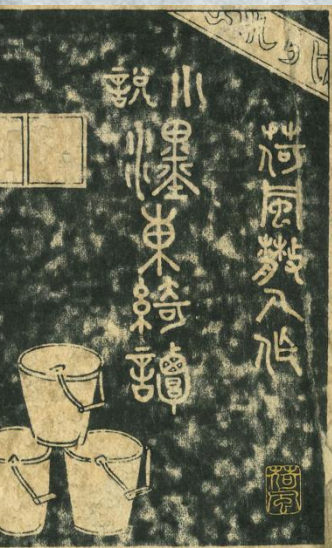 荷風散人作
小説
濹東綺譚
荷風